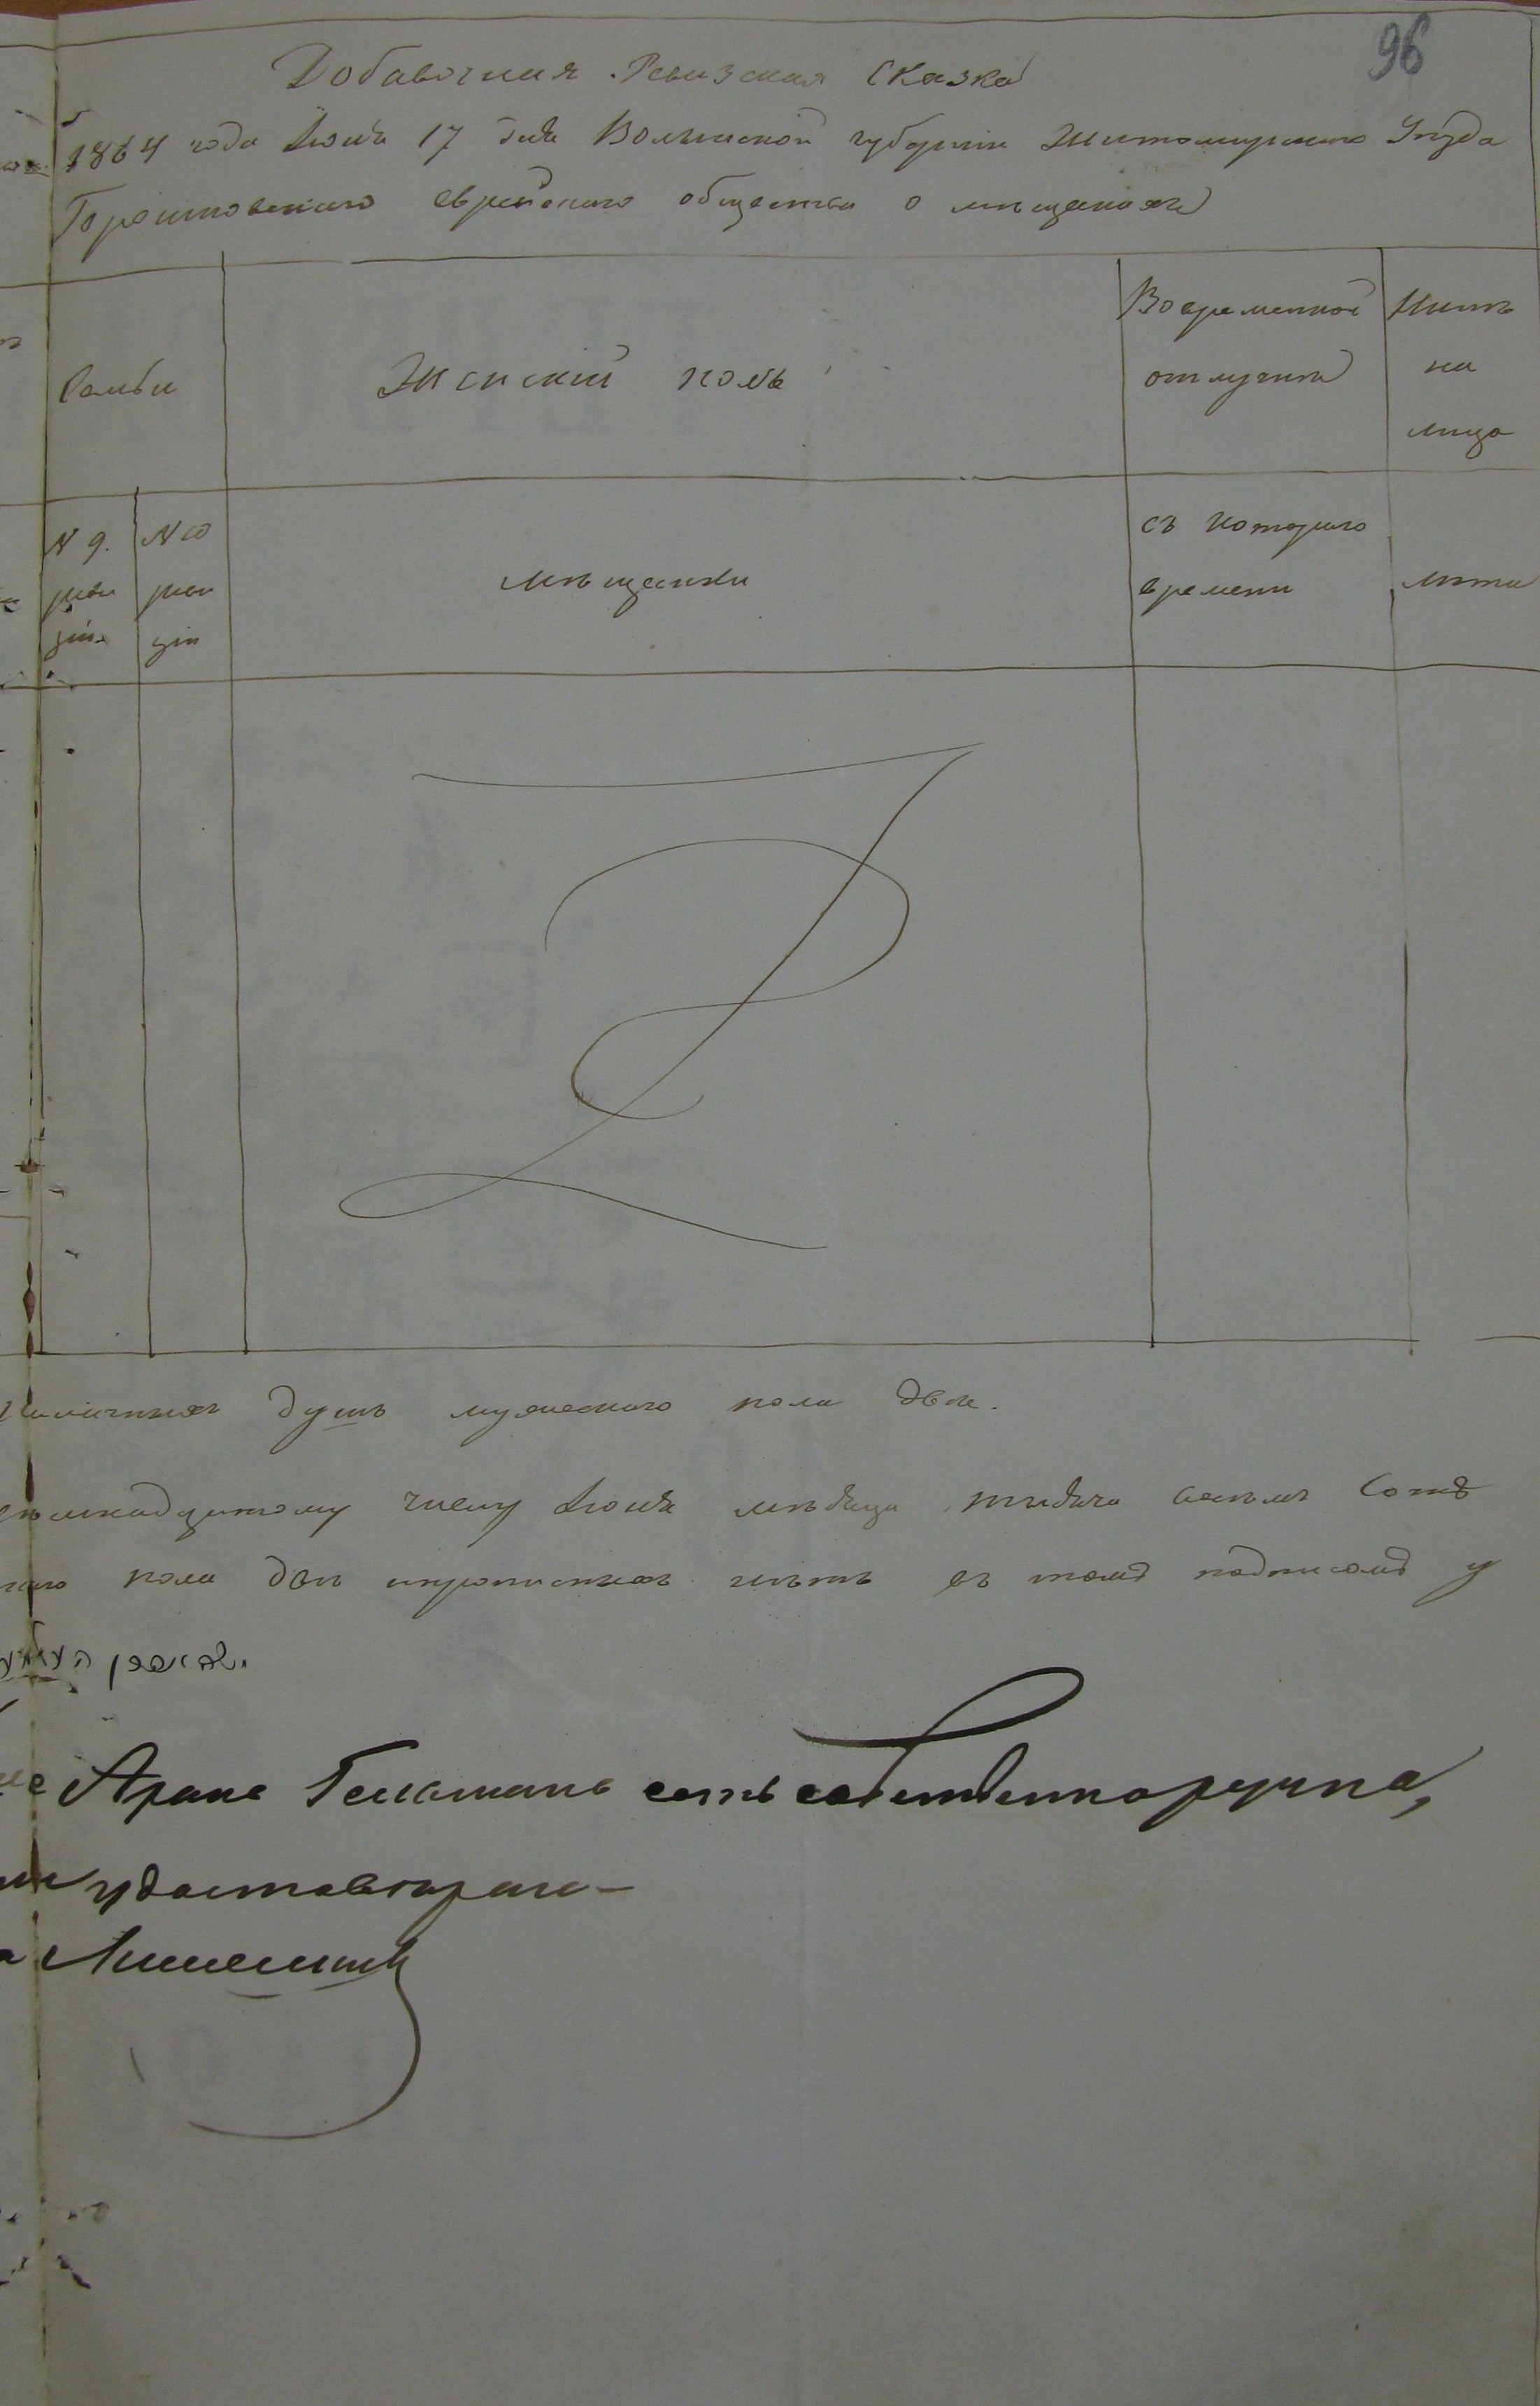 96
Добавочная Ревизская Сказка
1864 года Іюня 17 дня Волынской губерніи Житомирскаго Уѣзда
Горошковскаго еврейскаго общества о мѣщанахъ
Семьи
Женскій полъ
Во временной отлучкѣ
Нынѣ на лицо
N 9. реви зіи
N 10 реви зіи
мѣщанки
съ котораго времени
лѣта
наличныхъ душъ мужескаго пола двѣ.
числу Іюня мѣсяца тысяча восемь сотъ
пола двѣ прописныхъ нѣтъ въ томъ подписомъ у
Арана Гельмана есть собственноручна,
удостовѣряю